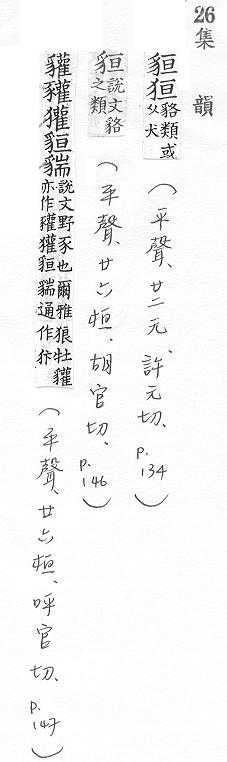 26 集韻
貆狟貉類或从犬（平聲、廿二元、許元切、p.134）
貆說文貉之類（平聲、廿六桓、胡官切、p.146）
貛豲獾貆貒說文野豕也爾雅狼牡貛亦作豲獾貆貒通作㹕（平聲、廿六桓、呼官切、p.147）